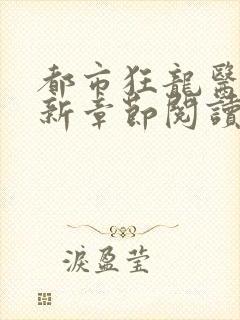 都市狂龍醫
新章節閱讀
淚盈莹